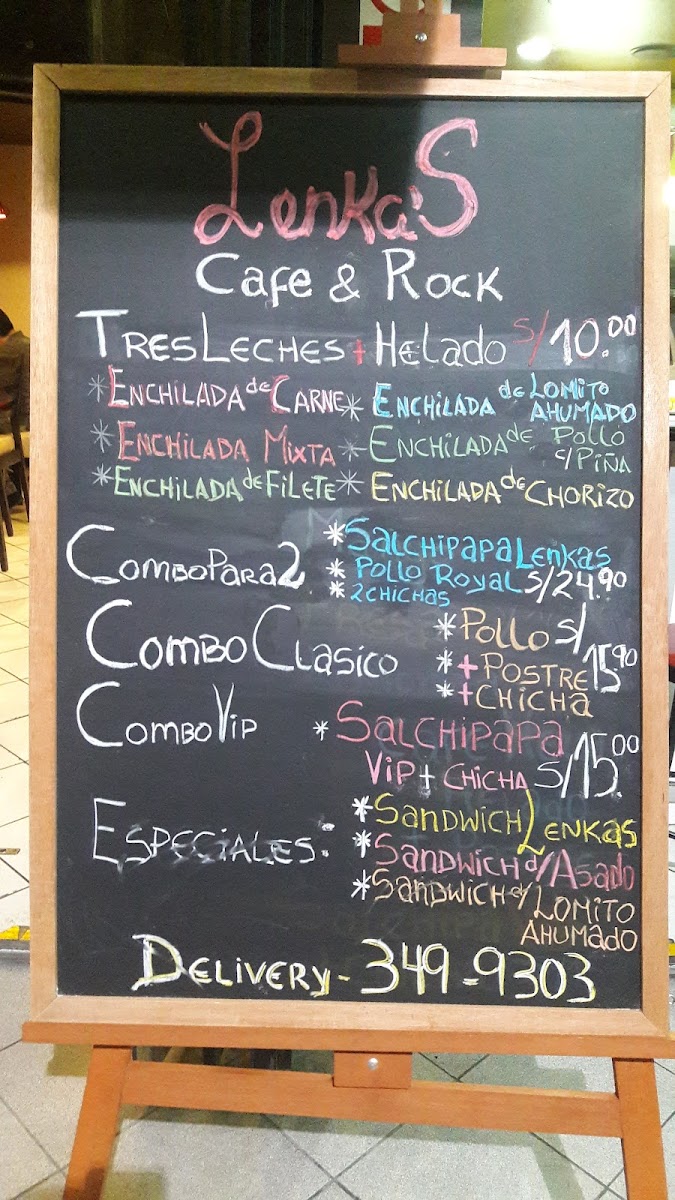 Lenka'S
Cafe & Rock
TresLeches + Helado S/10.00
*Enchilada de Carne * Enchilada de Lomito Ahumado
*Enchilada Mixta * Enchilada de Pollo c/Piña
*Enchilada de Filete * Enchilada de Chorizo
Combo Para 2 *Salchipapa Lenkas
* Pollo Royal S/24.90
* 2 Chichas
Combo Clasico *Pollo S/15.90
*+Postre
*+Chicha
Combo Vip *Salchipapa
Vip + Chicha S/15.00
Especiales: *Sandwich Lenkas
*Sandwich d/Asado
*Sandwich d/Lomito
Ahumado
Delivery - 349-9303